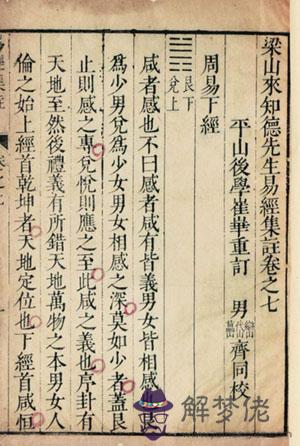 梁山來知德先生易經集註卷之七
平山後學崔華重訂 男 齊同校
周易下經
艮下
兌上
咸者感也不曰感者咸有皆義男女皆相感也艮
爲少男兌爲少女男女相感之深莫如少者蓋艮
止則感之專兌悅則應之至此咸之義也序卦有
天地至然後禮義有所錯天地萬物之本男女人
倫之始上經首乾坤者天地定位也下經首咸恒
解夢佬